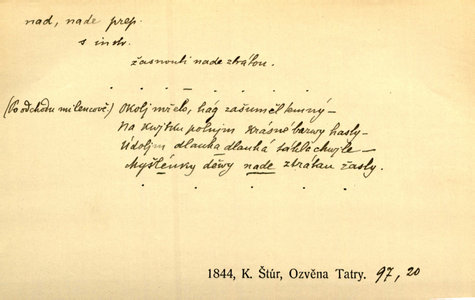 nad, nade prep.
s instr.
žasnouti nade ztrátou.
. . — . . . .
(Po odchodu milencově.) Okolj mřelo, hág zašuměl temný —
Na kwjtku polnjm krásné barwy hasly —
Údoljm dlauhá dlauhá táhle chwjle —
Myšlénky děwy nade ztrátau žasly.
. . . . . .
1844, K. Štúr, Ozvěna Tatry. 97, 20